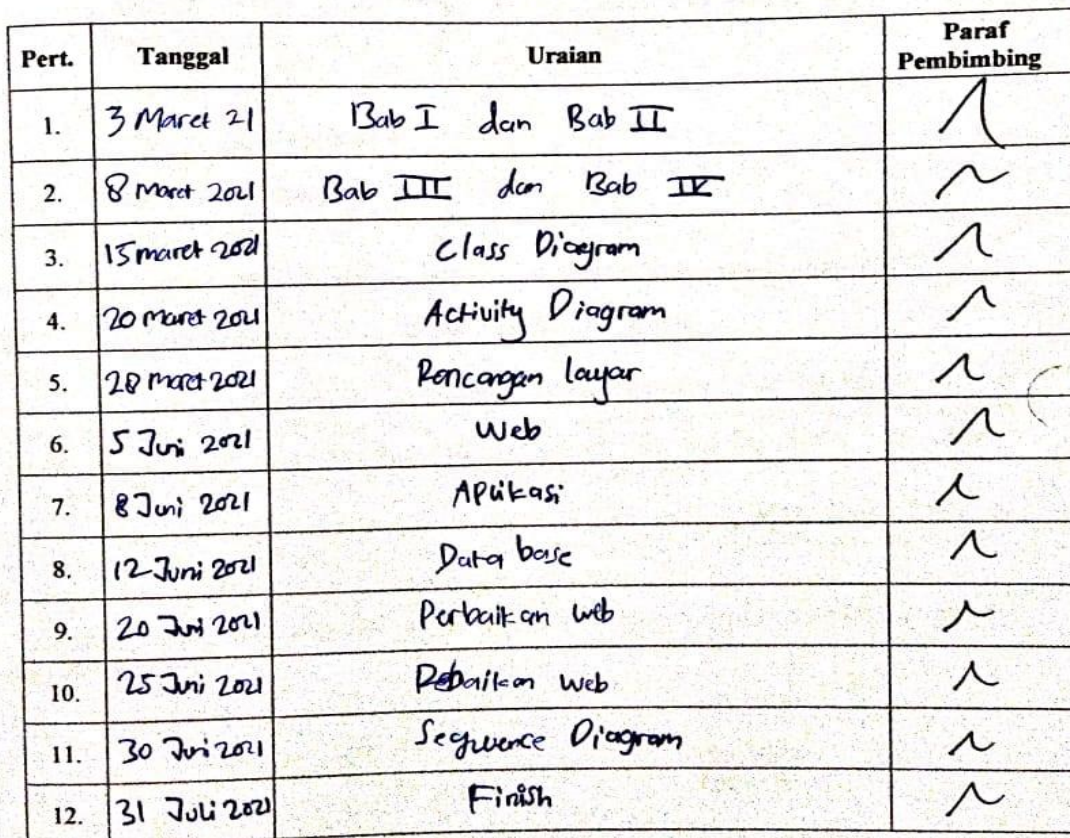 Pert. Tanggal Uraian Paraf Pembimbing
1. 3 Maret 21 Bab I dan Bab II
2. 8 Maret 2021 Bab III dan Bab IV
3. 15 maret 2021 Class Diagram
4. 20 Maret 2021 Activity Diagram
5. 28 Maret 2021 Rancangan layar
6. 5 Juni 2021 Web
7. 8 Juni 2021 Aplikasi
8. 12 Juni 2021 Data base
9. 20 Juni 2021 Perbaikan web
10. 25 Juni 2021 Perbaikan web
11. 30 Juni 2021 Sequence Diagram
12. 31 Juli 2021 Finish